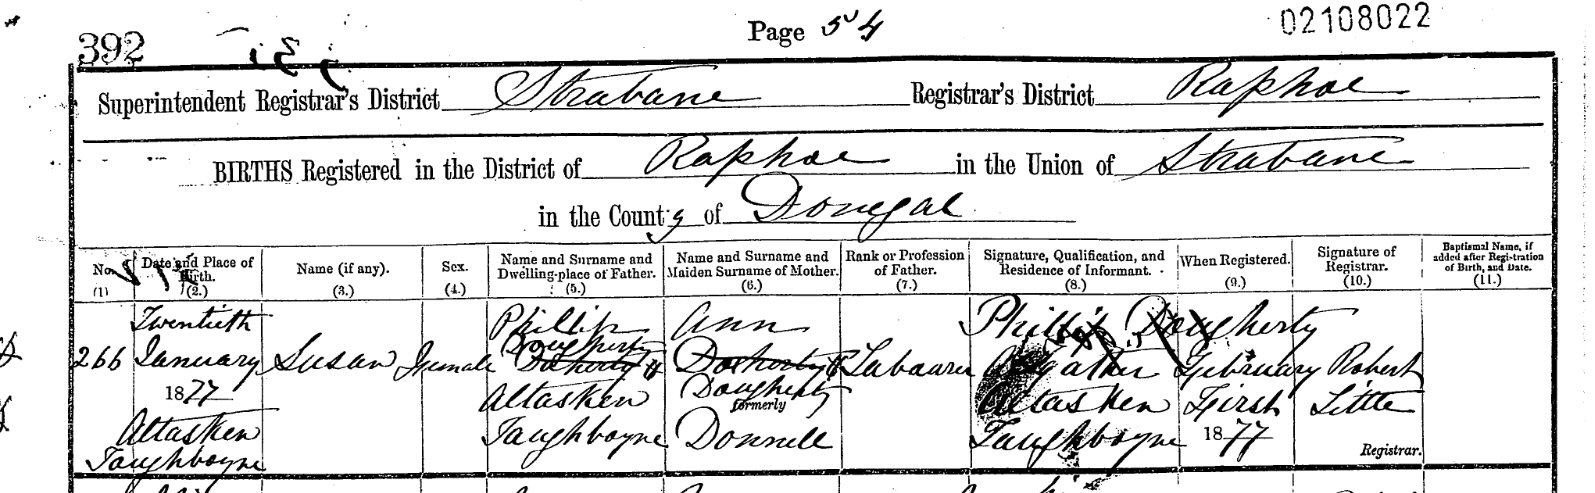 Page 54
02108022
392
Superintendent Registrar's District Strabane Registrar's District Raphoe
BIRTHS Registered in the District of Raphoe in the Union of Strabane
in the County of Donegal
No. (1)
Date and Place of Birth. (2.)
Name (if any). (3.)
Sex. (4.)
Name and Surname and Dwelling-place of Father. (5.)
Name and Surname and Maiden Surname of Mother. (6.)
Rank or Profession of Father. (7.)
Signature, Qualification, and Residence of Informant. (8.)
When Registered. (9.)
Signature of Registrar. (10.)
Baptismal Name, if added after Registration of Birth, and Date. (11.)
266
Twentieth
January
1877
Altasken
Taughboyne
Susan
Female
Phillip
Dougherty
Doherty
Altasken
Taughboyne
Ann
Doherty
Dougherty
formerly
Donnell
Labourer
Phillip Dougherty
Father
Altasken
Taughboyne
February
First
1877
Robert
Little
Registrar.